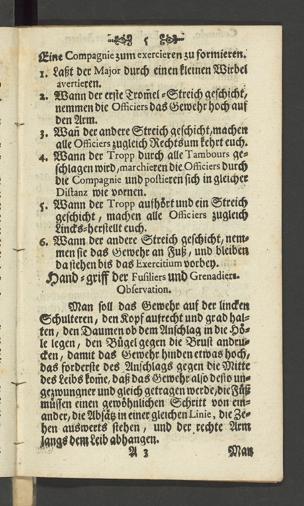 5
Eine Compagnie zum exercieren zu formieren.
1. Laßt der Major durch einen kleinen Wirbel
avertieren.
2. Wann der erste Trom̃el-Streich geschicht,
nemmen die Officiers das Gewehr hoch auf
den Arm.
3. Wan̄ der andere Streich geschicht, machen
alle Officiers zugleich Rechtsum kehrt euch.
4. Wann der Tropp durch alle Tambours ge-
schlagen wird, marchieren die Officiers durch
die Compagnie und postieren sich in gleicher
Distanz wie vornen.
5. Wann der Tropp aufhört und ein Streich
geschicht, machen alle Officiers zugleich
Lincks-herstellt euch.
6. Wann der andere Streich geschicht, nem-
men sie das Gewehr an Fuß, und bleiben
da stehen bis das Exercitium vorbey.
Hand-griff der Fusiliers und Grenadiers.
Observation.
Man soll das Gewehr auf der lincken
Schulteren, den Kopf aufrecht und grad hal-
ten, den Daumen ob dem Anschlag in die Hö-
le legen, den Bügel gegen die Brust andru-
cken, damit das Gewehr hinden etwas hoch,
das forderste des Anschlags gegen die Mitte
des Leibs kom̃e, daß das Gewehr also desto un-
gezwungner und gleich getragen werde, die Füß
müssen einen gewöhnlichen Schritt von ein-
ander, die Absätz in einer gleichen Linie, die Ze-
hen auswerts stehen, und der rechte Arm
langs dem Leib abhangen.
A 3 Man